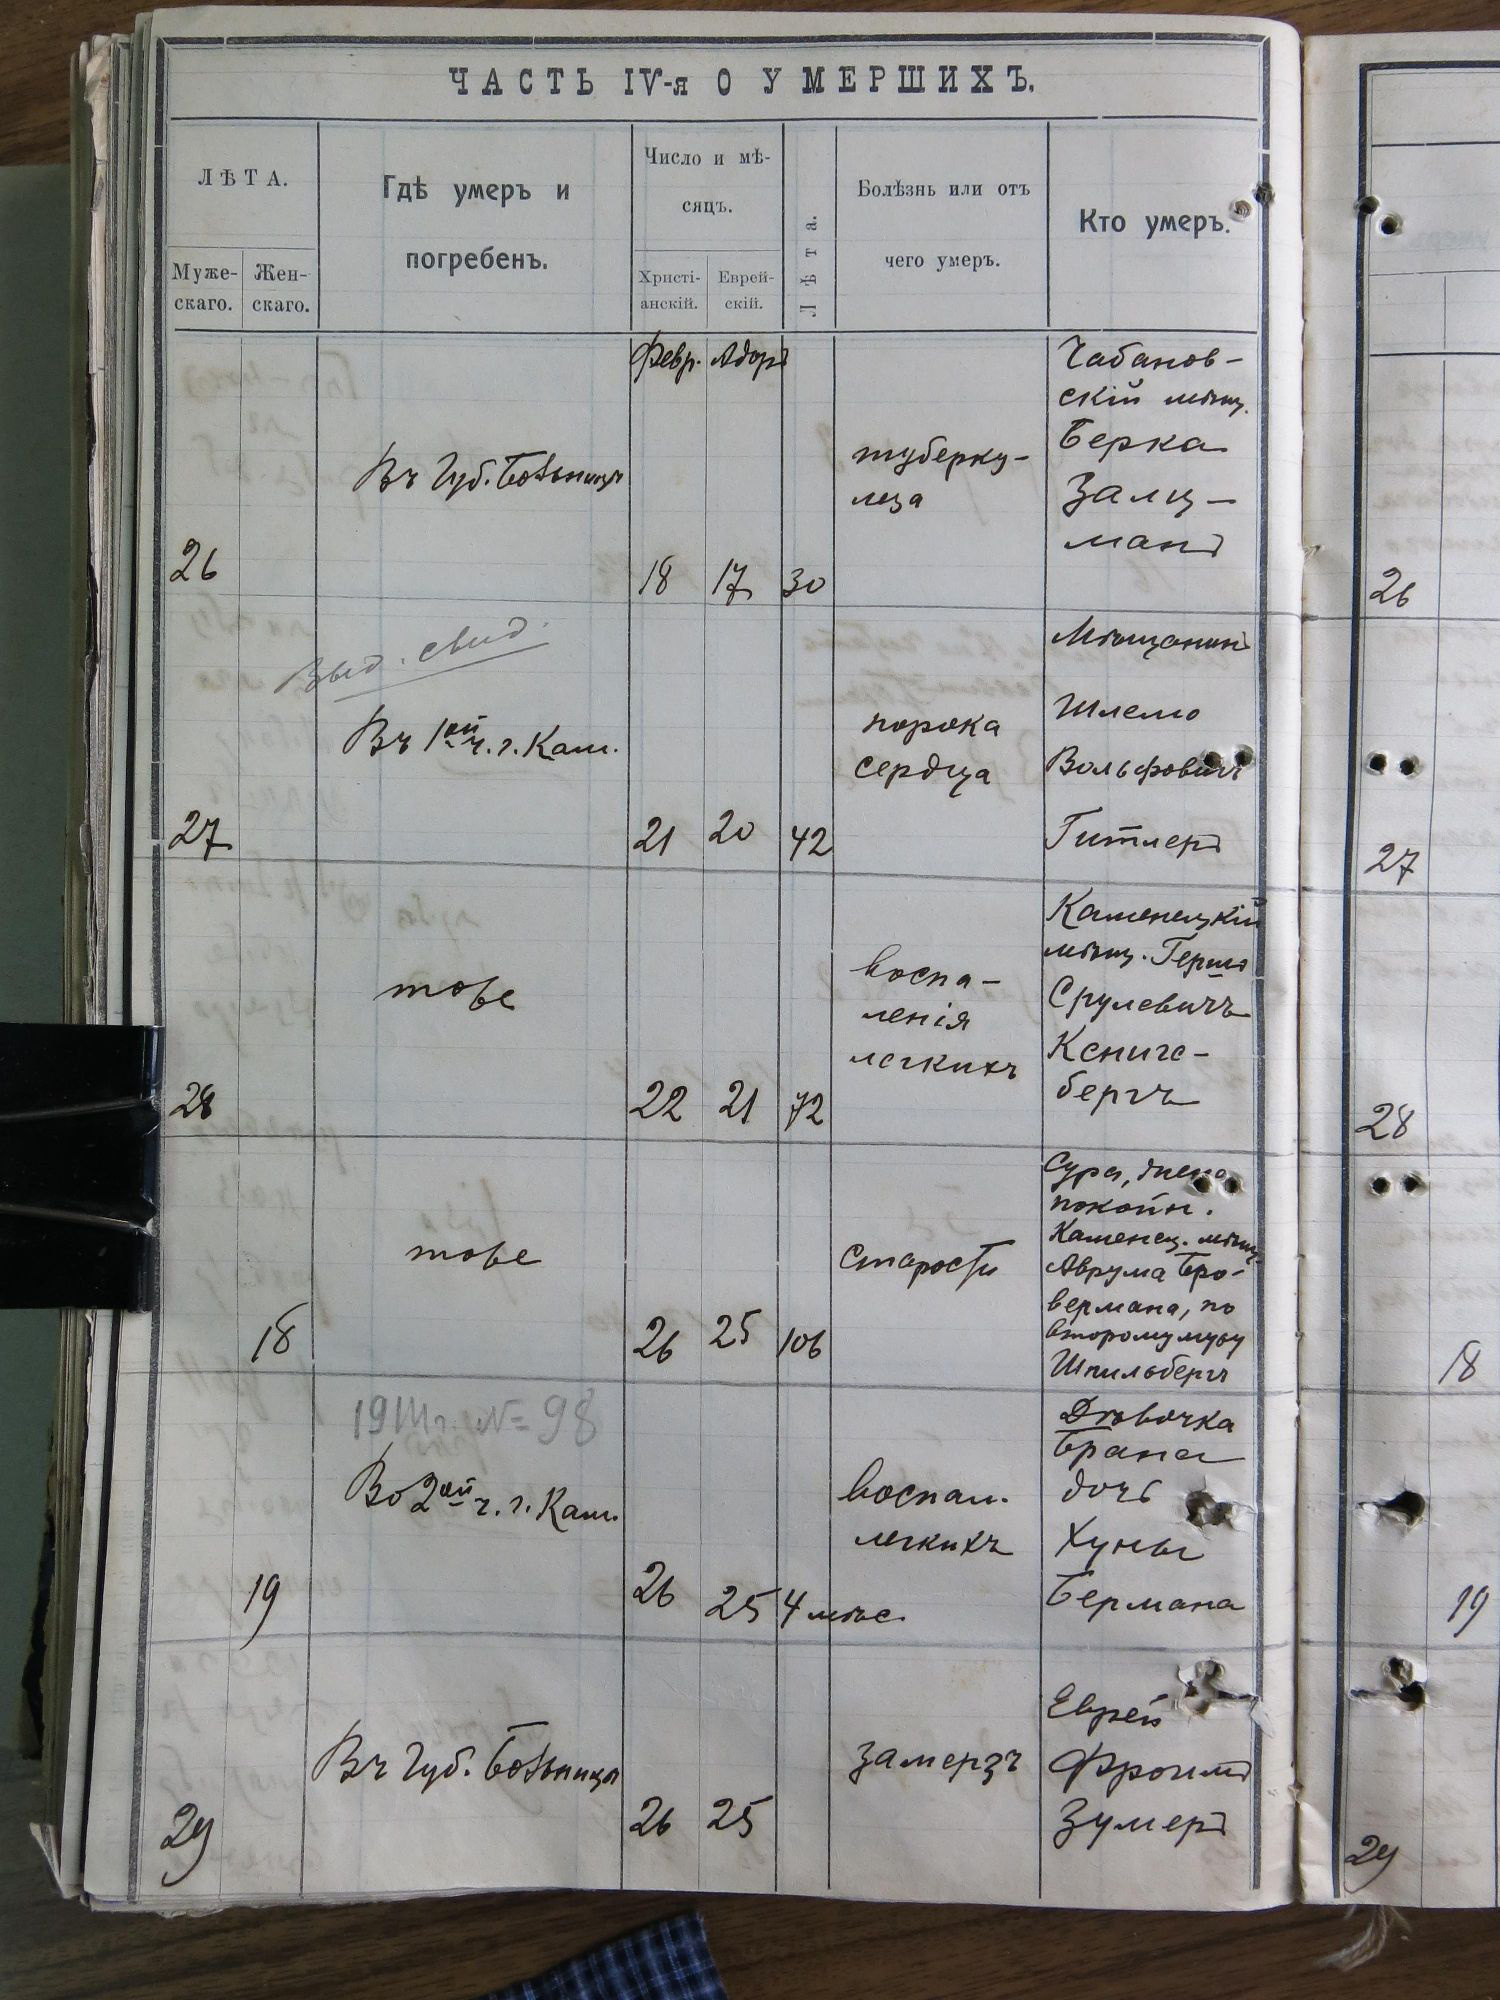 ЧАСТЬ IV-я О УМЕРШИХЪ.
ЛѢТА.
Муже-
скаго.
Жен-
скаго.
Гдѣ умеръ и
погребенъ.
Число и мѣ-
сяцъ.
Христі-
анскій.
Еврей-
скій.
Лѣта.
Болѣзнь или отъ
чего умеръ.
Кто умеръ.
Февр. Адоръ
26
Въ Губ. Больницѣ
18 17 30
туберку-
леза
Чабанов-
скій мѣщ.
Берка
Залц-
манъ
26
Выд. свид.
27
Въ 1ой ч. г. Кам.
21 20 42
порока
сердца
Мѣщанинъ
Шлемо
Вольфовичъ
Гитлеръ
27
28
тоже
22 21 72
воспа-
ленія
легкихъ
Каменецкій
мѣщ. Гершъ
Срулевичъ
Кениго-
бергъ
28
18
тоже
26 25 106
старости
Сура, жена
покойн.
Каменец. мѣщ.
Аврума Бро-
вермана, по
второму мужу
Шпильбергъ
18
1911г. №=98
19
Во 2ой ч. г. Кам.
26 25 4 мѣс.
воспал.
легкихъ
Дѣвочка
Брана
дочь
Хуны
Бермана
19
29
Въ Губ. Больницѣ
26 25
замерзъ
Еврей
Фроимъ
Зумеръ
29